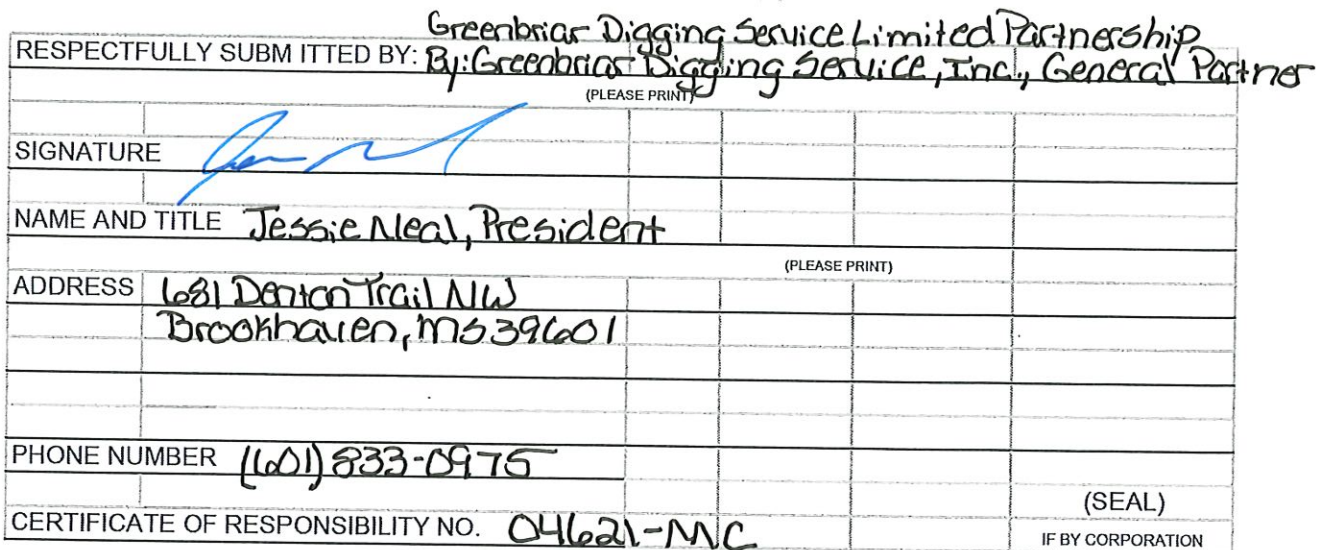 Greenbriar Digging Service Limited Partnership
RESPECTFULLY SUBM ITTED BY: By: Greenbriar Digging Service, Inc., General Partner
(PLEASE PRINT)
SIGNATURE
NAME AND TITLE Jessie Neal, President
(PLEASE PRINT)
ADDRESS 681 Denton Trail NW
Brookhaven, MS 39601
PHONE NUMBER (601) 833-0975
(SEAL)
CERTIFICATE OF RESPONSIBILITY NO. 04621-MC
IF BY CORPORATION